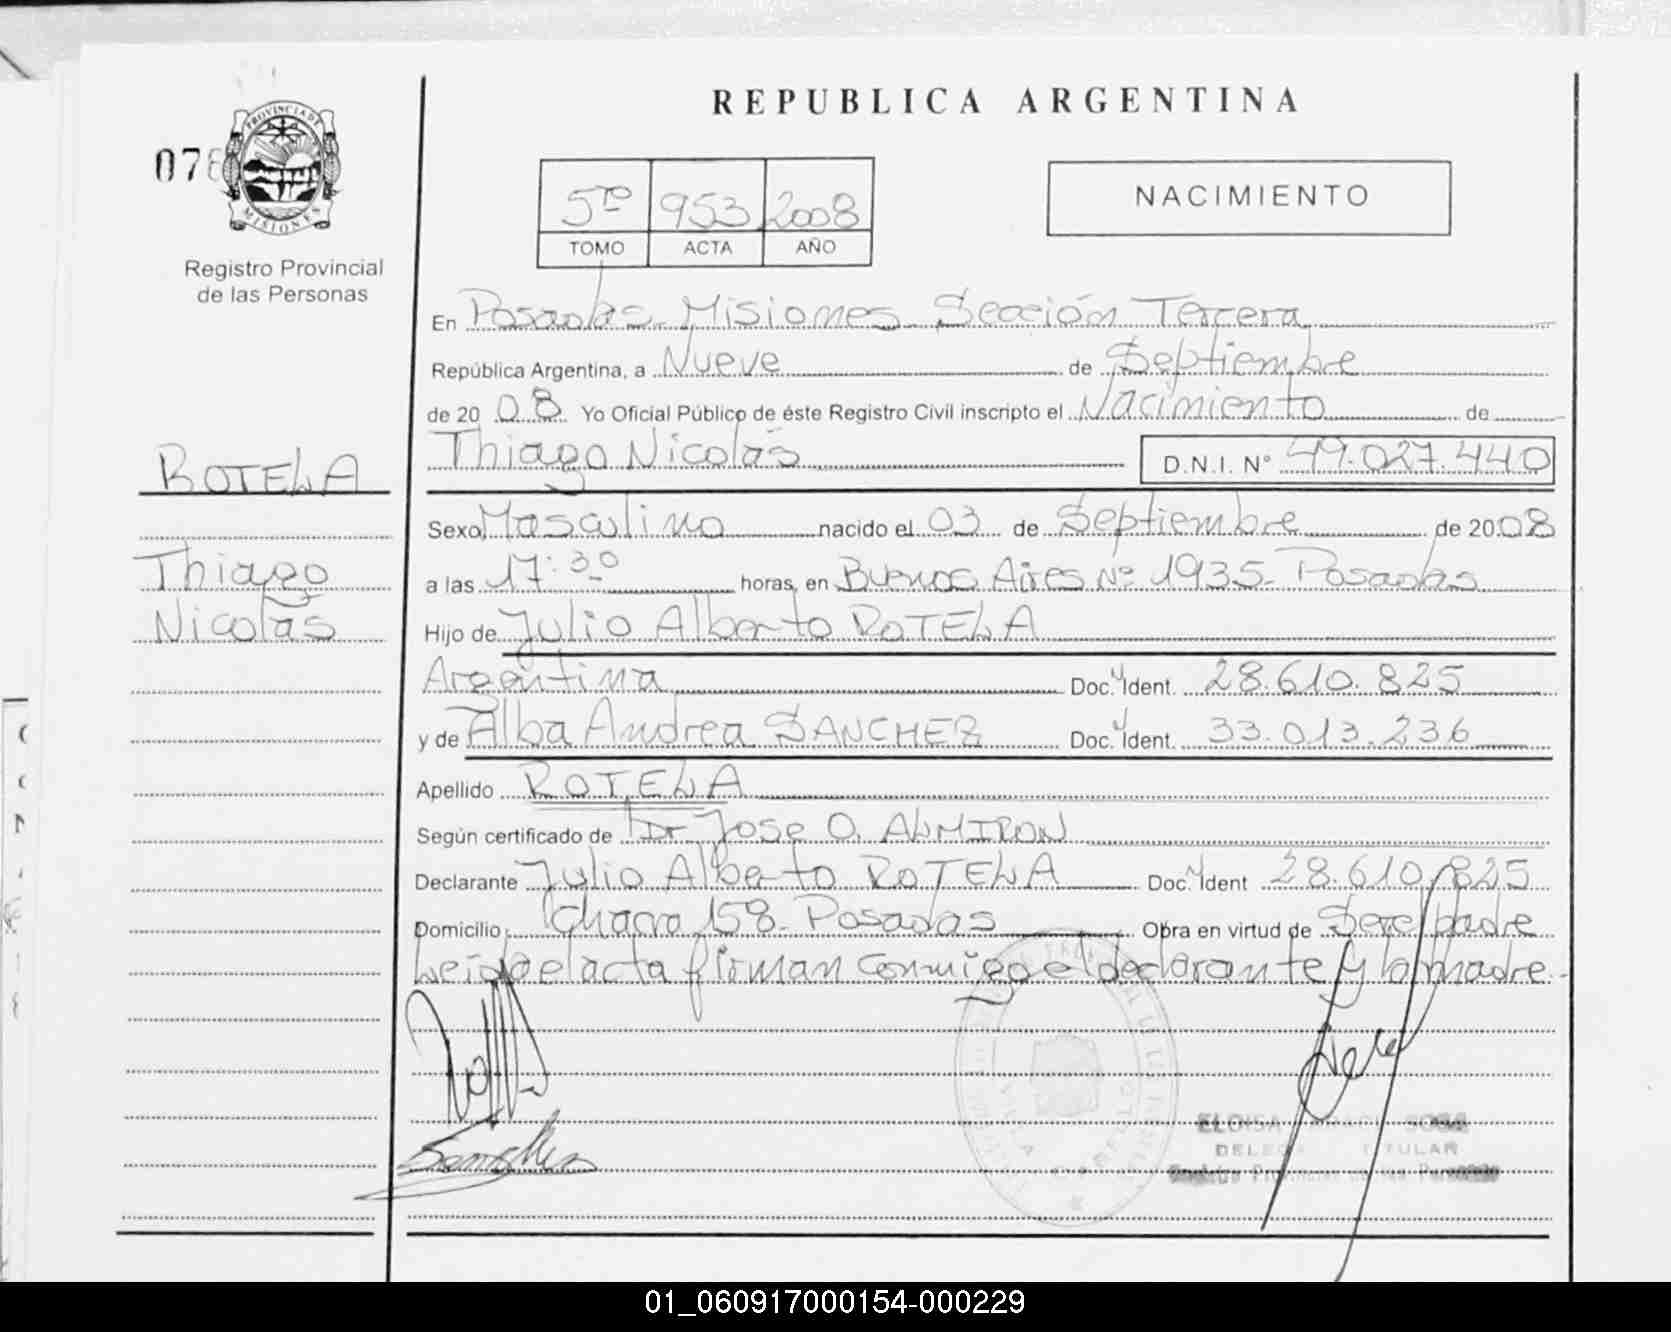 REPUBLICA ARGENTINA
PROVINCIA DE
MISIONES
Registro Provincial
de las Personas
5to 953 2008
TOMO ACTA AÑO
NACIMIENTO
En Posadas - Misiones - Sección Tercera
República Argentina, a Nueve de Septiembre
de 20 08 Yo Oficial Público de éste Registro Civil inscripto el Nacimiento de
Thiago Nicolás D.N.I. Nº 49.027.440
ROTELA
Thiago
Nicolás
Sexo Masculino nacido el 03 de Septiembre de 2008
a las 17:30 horas, en Buenos Aires Nº 1935 - Posadas
Hijo de Julio Alberto ROTELA
Argentina Doc. Ident. 28.610.825
y de Alba Andrea SANCHEZ Doc. Ident. 33.013.236
Apellido ROTELA
Según certificado de Dr Jose O. ALMIRON
Declarante Julio Alberto ROTELA Doc. Ident 28.610.825
Domicilio: Chacra 158 - Posadas Obra en virtud de Ser el padre
Leida el acta firman conmigo el declarante y la madre -
ELOISA SOSA
TITULAR
01_060917000154-000229